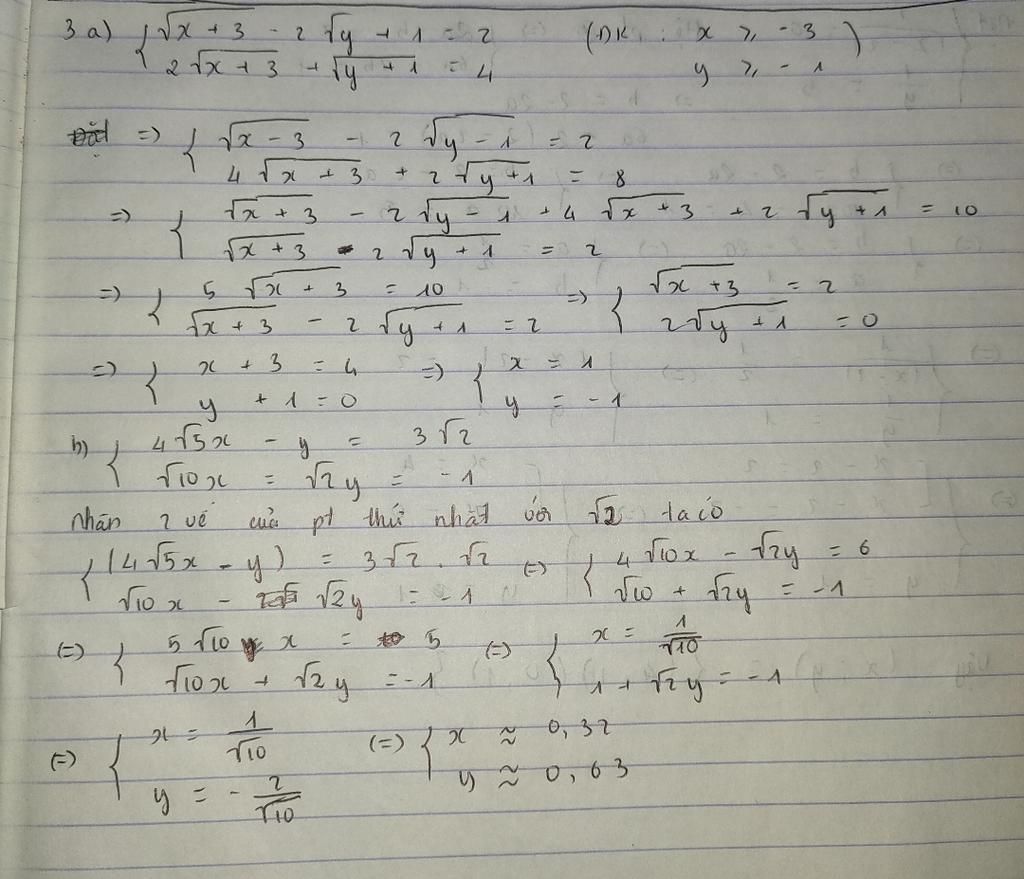 3 a) { √x + 3 - 2 √y + 1 = 2 (ĐK : x ≥ -3 )
2 √x + 3 + √y + 1 = 4 y ≥ -1
=> { √x - 3 - 2 √y - 1 = 2
4 √x + 3 + 2 √y + 1 = 8
=> { √x + 3 - 2 √y - 1 + 4 √x + 3 + 2 √y + 1 = 10
√x + 3 - 2 √y + 1 = 2
=> { 5 √x + 3 = 10 => { √x + 3 = 2
√x + 3 - 2 √y + 1 = 2 2 √y + 1 = 0
=> { x + 3 = 4 => { x = 1
y + 1 = 0 y = -1
b) { 4√5x - y = 3√2
√10x = √2y = -1
nhân 2 vế của pt thứ nhất với √2 ta có
{ (4√5x - y) = 3√2 . √2 (=) { 4√10x - √2y = 6
√10x - √2y = -1 √10 + √2y = -1
(=) { 5√10 x = 5 (=) { x = 1/√10
√10x + √2y = -1 1 + √2y = -1
(=) { x = 1/√10 (=) { x ≈ 0,32
y = - 2/√10 y ≈ 0,63